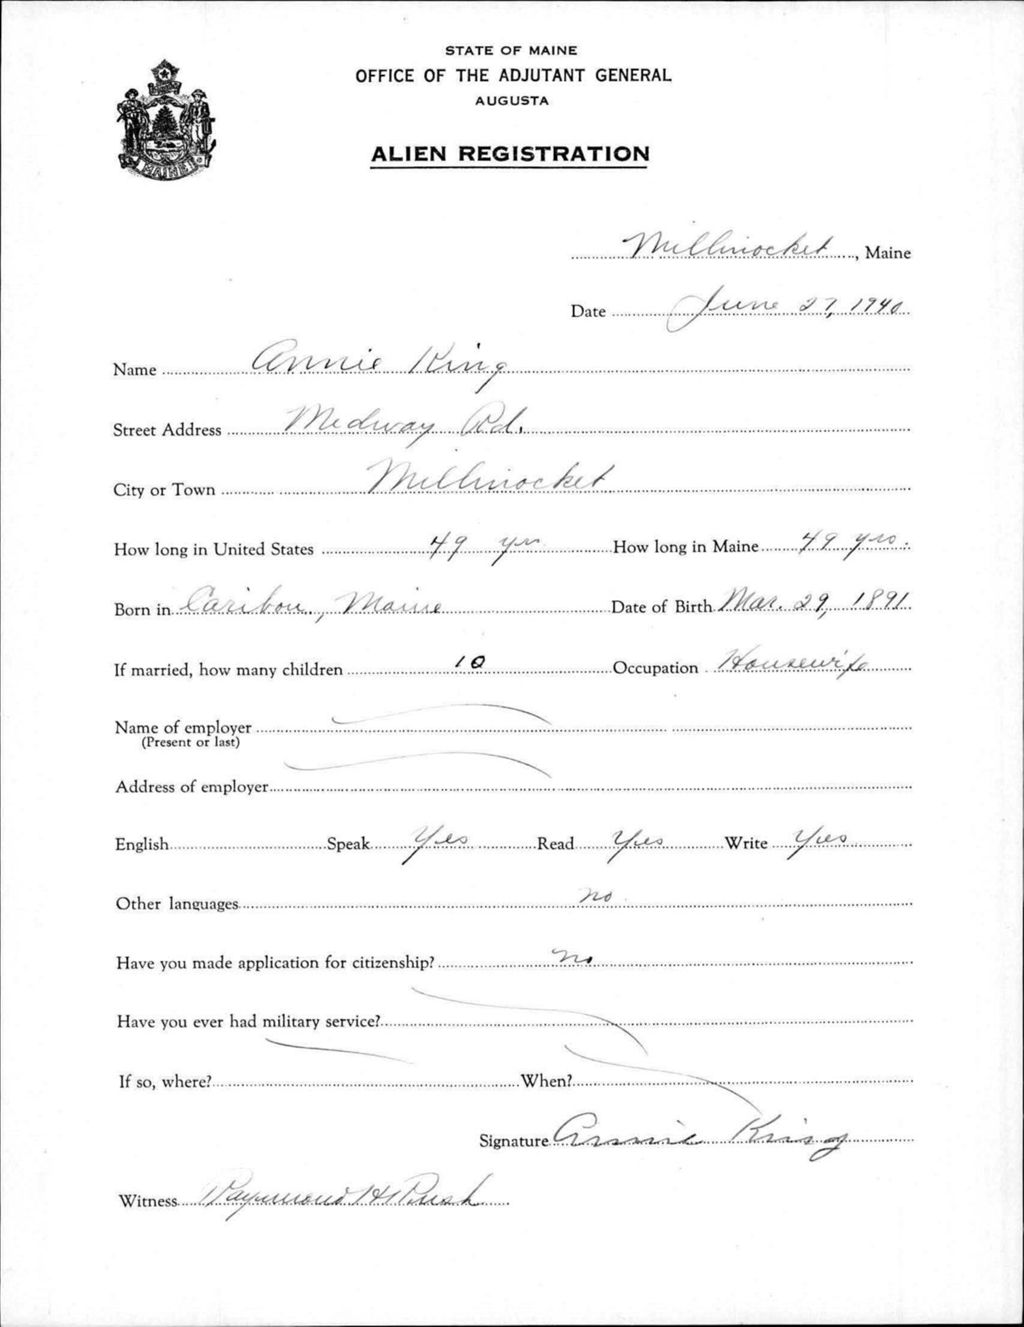 STATE OF MAINE
OFFICE OF THE ADJUTANT GENERAL
AUGUSTA
ALIEN REGISTRATION
MAINE
Millinocket, Maine
Date June 27, 1940
Name Annie King
Street Address Medway Rd.
City or Town Millinocket
How long in United States 49 yrs How long in Maine 49 yrs.
Born in Caribou, Maine Date of Birth Mar. 29, 1891
If married, how many children 10 Occupation Housewife
Name of employer
(Present or last)
Address of employer
English Speak Yes Read Yes Write Yes
Other languages no
Have you made application for citizenship? no
Have you ever had military service?
If so, where? When?
Signature Annie King
Witness Raymond H Rush